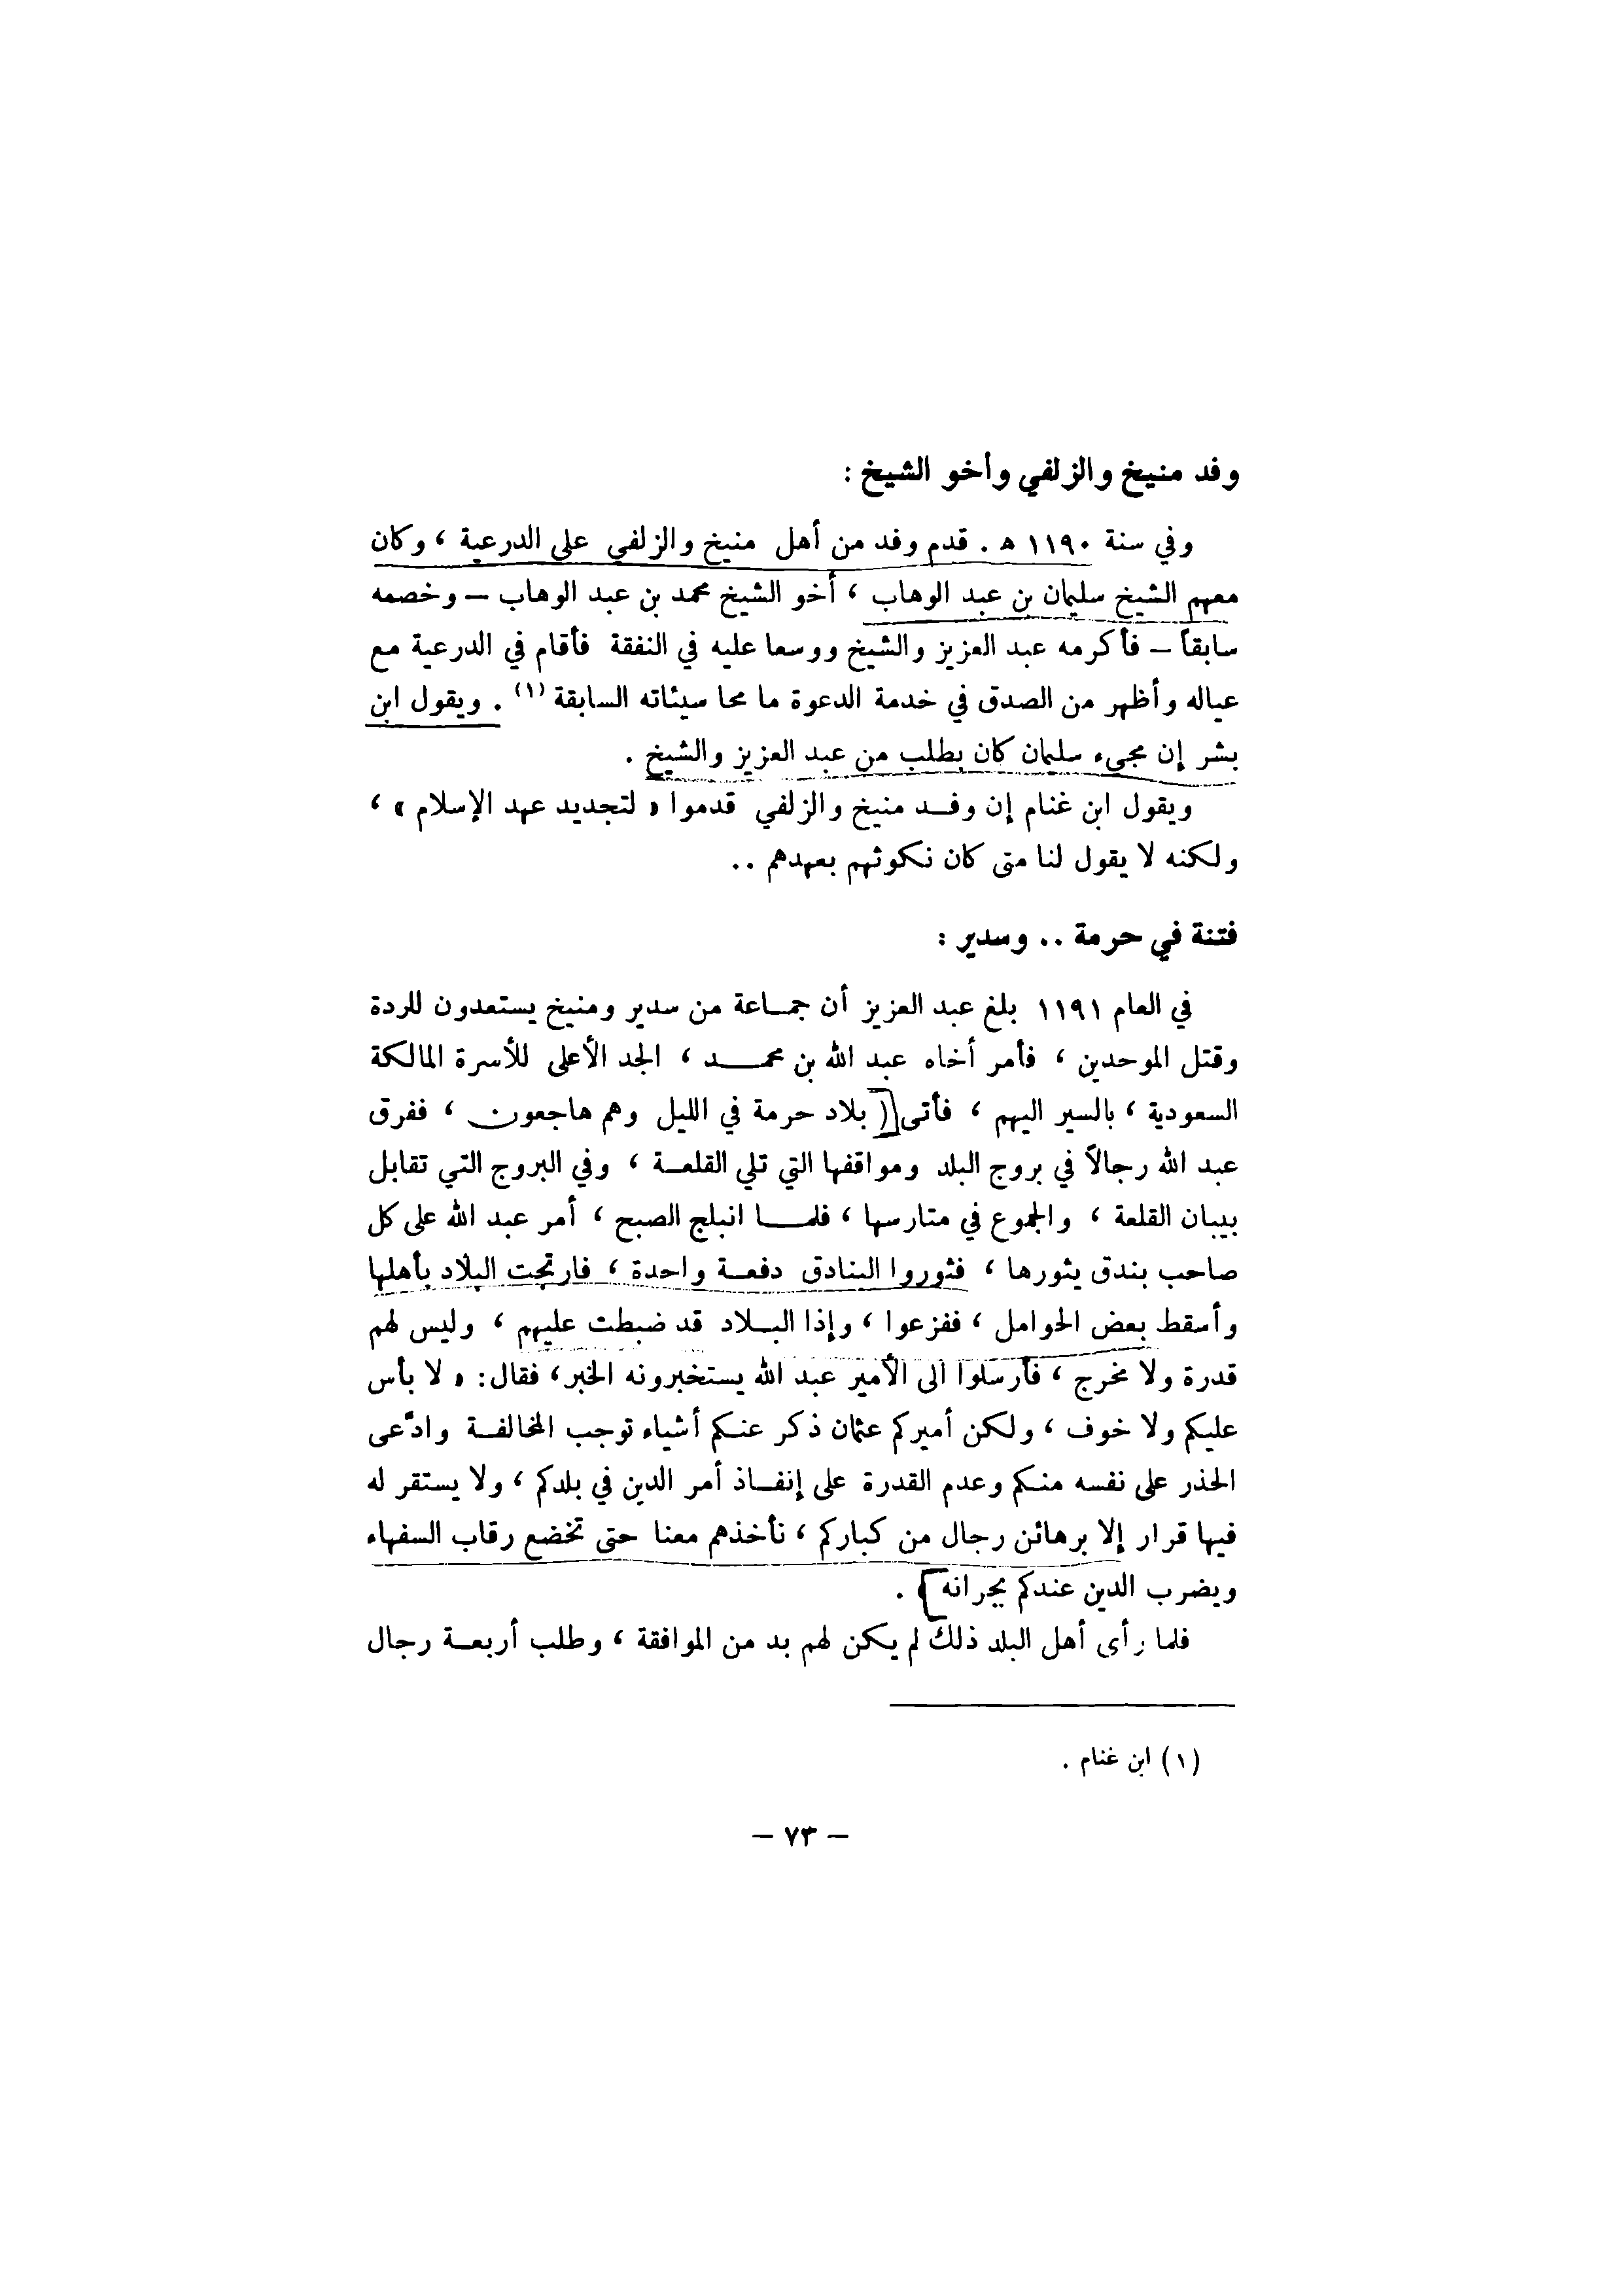 وفد منيخ والزلفي وأخو الشيخ :
وفي سنة ١١٩٠ ه . قدم وفد من أهل منيخ والزلفي على الدرعية ، وكان
معهم الشيخ سليمان بن عبد الوهاب ، أخو الشيخ محمد بن عبد الوهاب – وخصمه
سابقاً – فأكرمه عبد العزيز والشيخ ووسعا عليه في النفقة فأقام في الدرعية مع
عياله وأظهر من الصدق في خدمة الدعوة ما محا سيئاته السابقة (١) . ويقول ابن
بشر إن مجيء سليمان كان بطلب من عبد العزيز والشيخ .
ويقول ابن غنام إن وفد منيخ والزلفي قدموا « لتجديد عهد الإسلام » ،
ولكنه لا يقول لنا متى كان نكوثهم بعهدهم ..
فتنة في حرمة .. وسدير :
في العام ١١٩١ بلغ عبد العزيز أن جماعة من سدير ومنيخ يستعدون للردة
وقتل الموحدين ، فأمر أخاه عبد الله بن محمد ، الجد الأعلى للأسرة المالكة
السعودية ، بالسير اليهم ، فأتى (( بلاد حرمة في الليل وهم هاجعون ، ففرق
عبد الله رجالاً في بروج البلد ومواقفها التي تلي القلعة ، وفي البروج التي تقابل
بيبان القلعة ، والجموع في متارسها ، فلما انبلج الصبح ، أمر عبد الله على كل
صاحب بندق يثورها ، فثوروا البنادق دفعة واحدة ، فارتجت البلاد بأهلها
وأسقط بعض الحوامل ، ففزعوا ، وإذا البلاد قد ضبطت عليهم ، وليس لهم
قدرة ولا مخرج ، فأرسلوا الى الأمير عبد الله يستخبرونه الخبر ، فقال : « لا بأس
عليكم ولا خوف ، ولكن أميركم عثمان ذكر عنكم أشياء توجب المخالفة وادّعى
الحذر على نفسه منكم وعدم القدرة على إنفاذ أمر الدين في بلدكم ، ولا يستقر له
فيها قرار إلا برهائن رجال من كباركم ، نأخذهم معنا حتى تخضع رقاب السفهاء
ويضرب الدين عندكم بجرانه » .
فلما رأى أهل البلد ذلك لم يكن لهم بد من الموافقة ، وطلب أربعة رجال
(١) ابن غنام .
– ٧٣ –